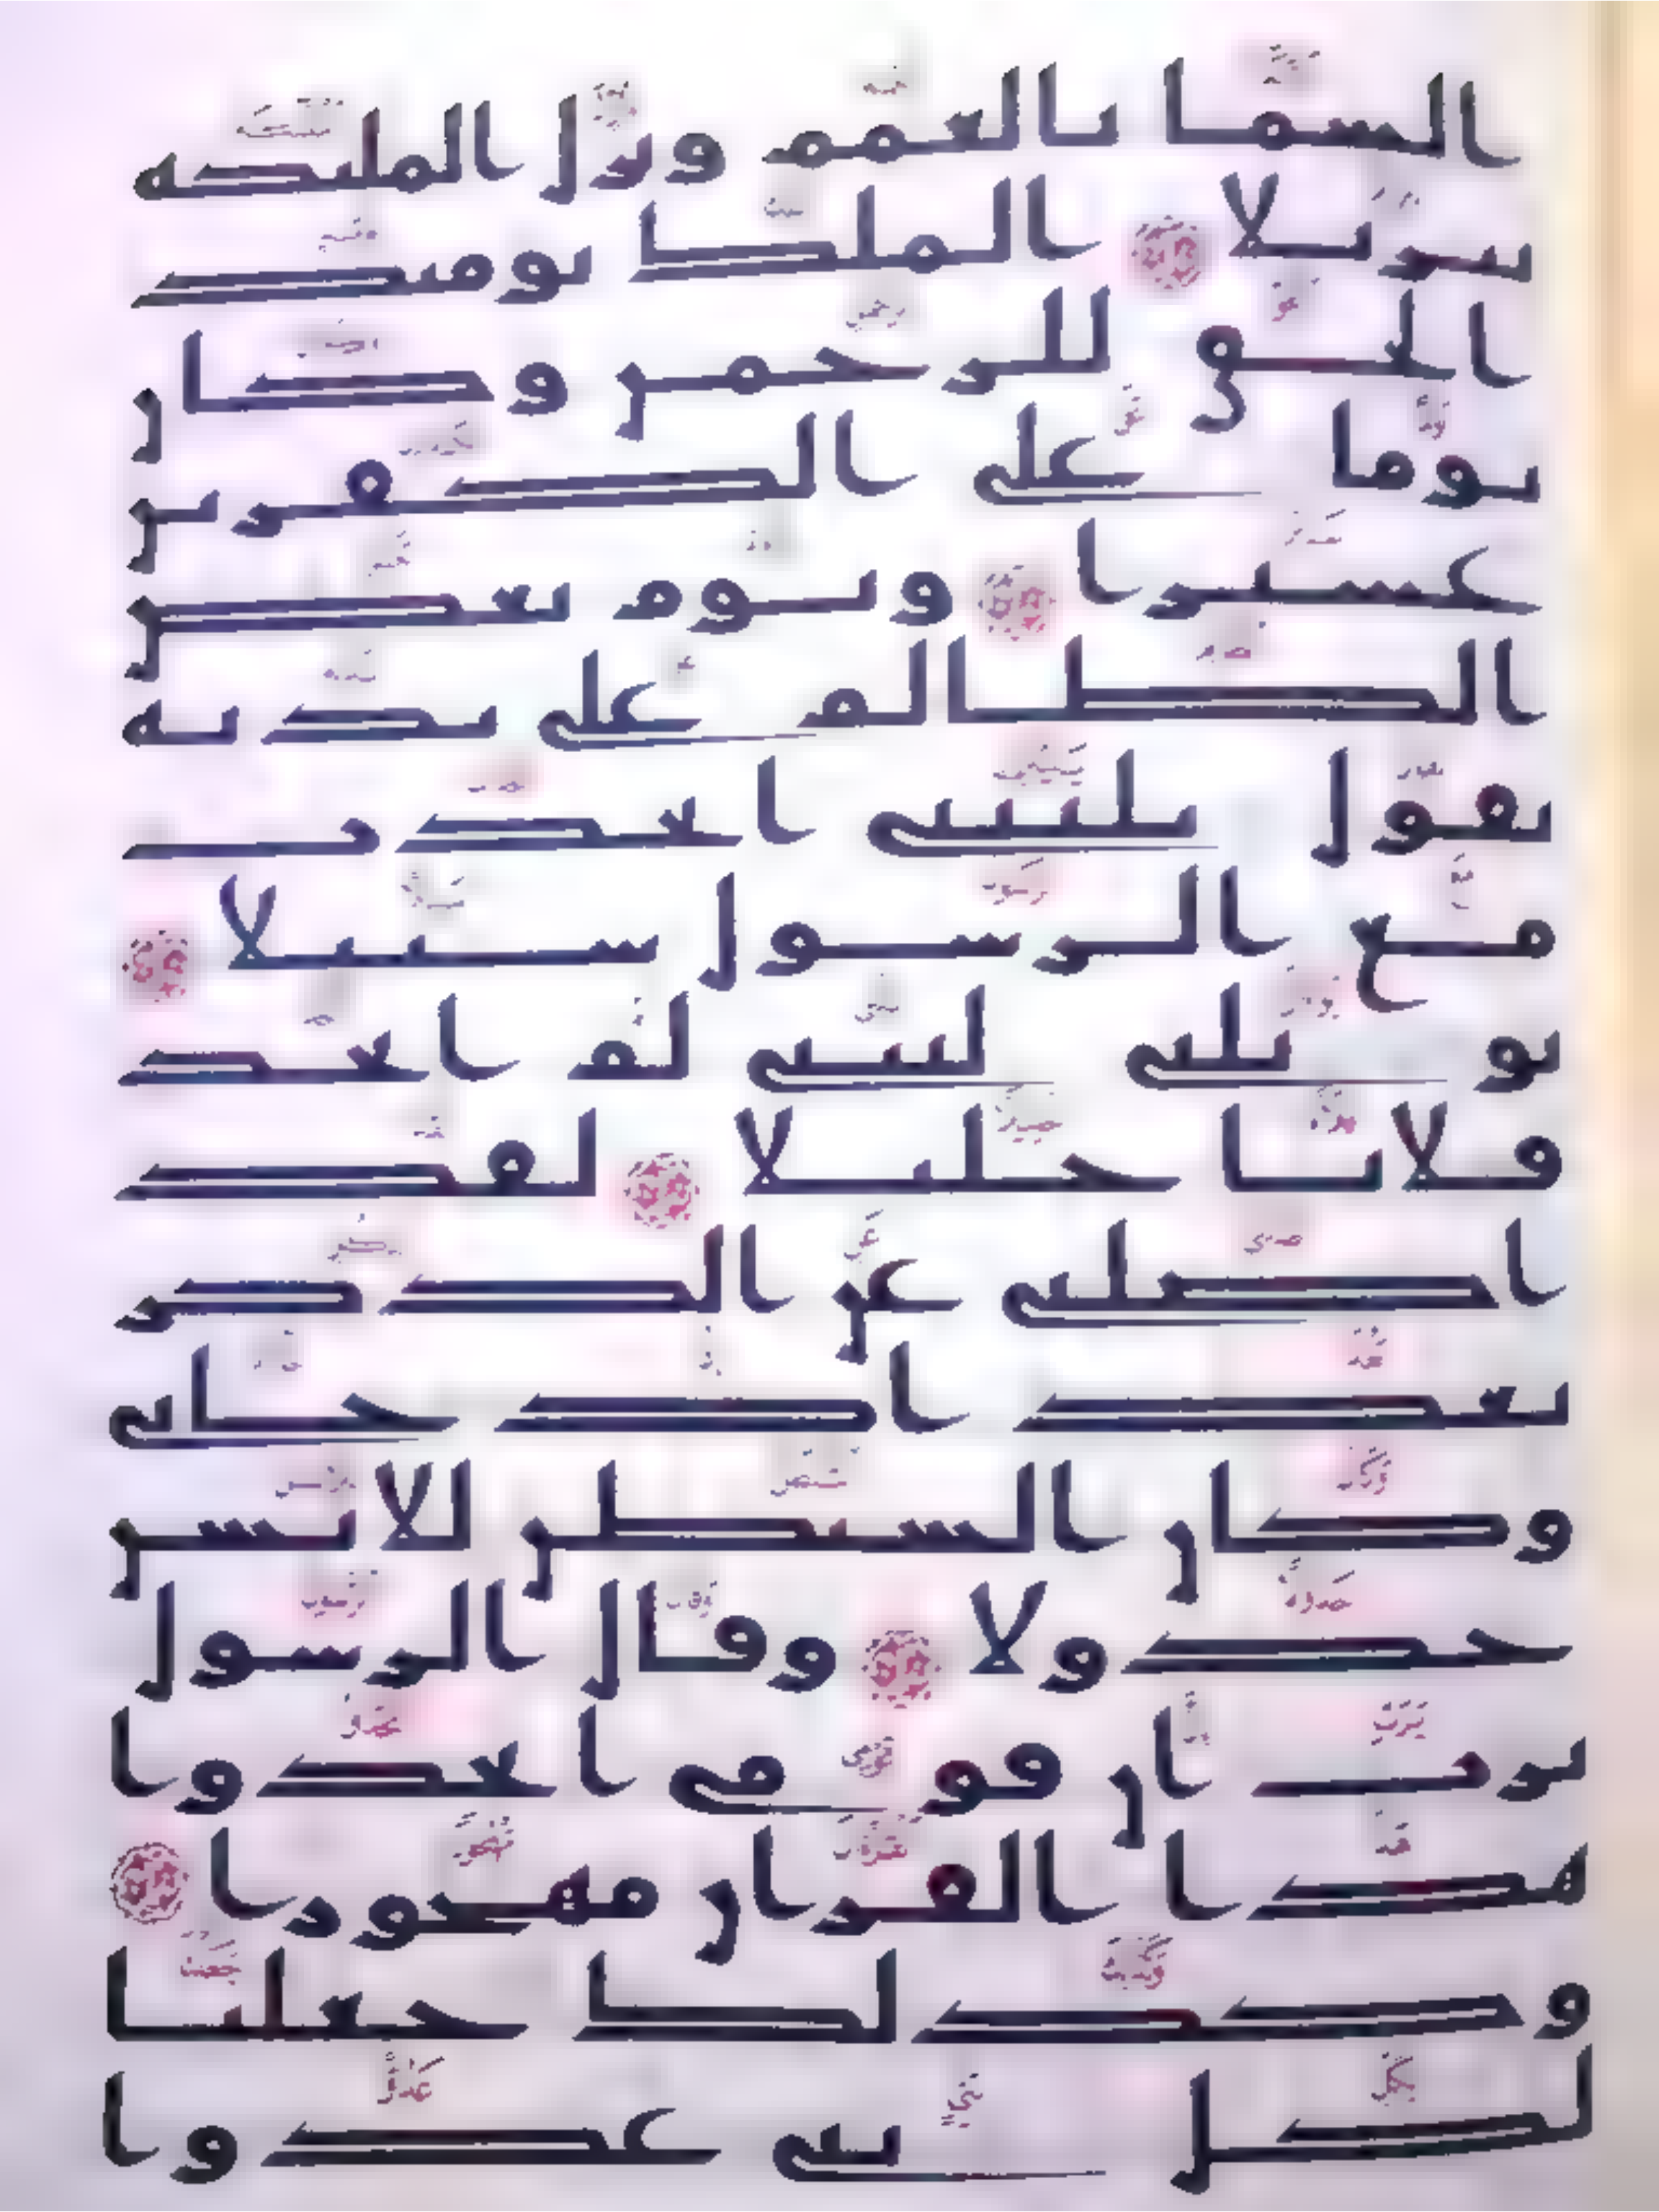 السما بالغمم ونزل الملئكة
تنزيلا الملك يومئذ
الحق للرحمن وكان
يوما على الكفرين
عسيرا ويوم يعض
الظالم على يديه
يقول يليتني اتخذت
مع الرسول سبيلا
يويلتى ليتني لم اتخذ
فلانا خليلا لقد
اضلني عن الذكر
بعد اذ جاني
وكان الشيطن للانسن
خذولا وقال الرسول
يرب ان قومي اتخذوا
هذا القران مهجورا
وكذلك جعلنا
لكل نبي عدوا